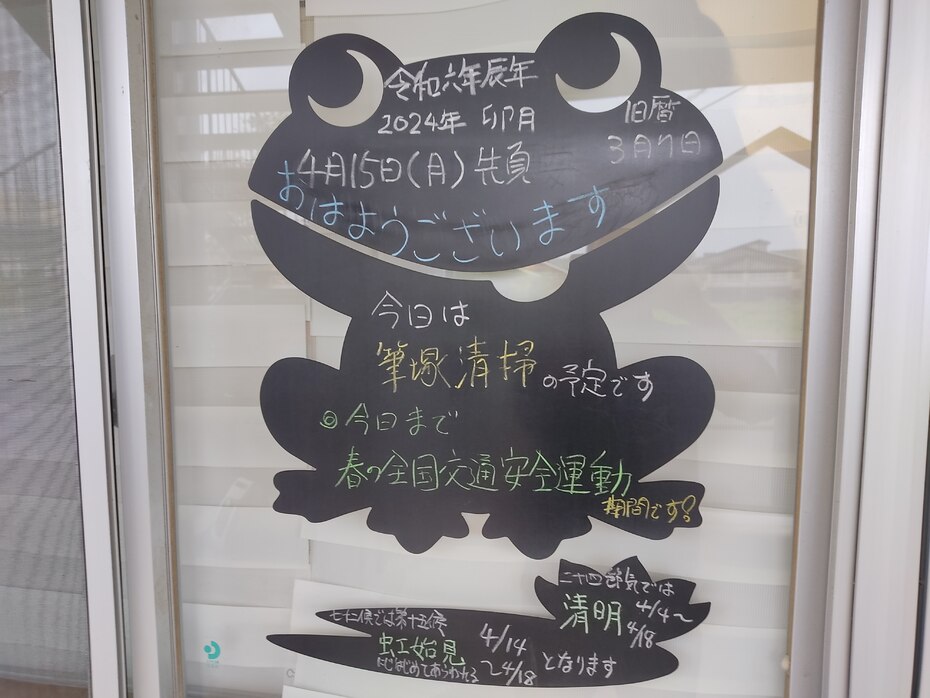 令和六年辰年
2024年 卯月
旧暦
3月7日
4月15日(月)先負
おはようございます
今日は
筆塚清掃の予定です
◎今日まで
春の全国交通安全運動
期間です!
二十四節気では
清明 4/4～
4/18
七十二候では第十五候
虹始見 4/14
にじはじめてあらわれる ～4/18 となります